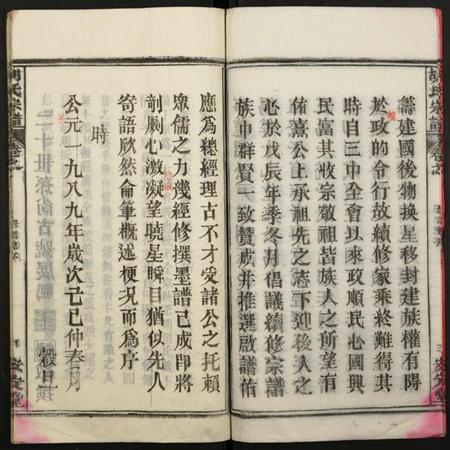 籌建國後物换星移封建族權有障
於政的令行故續修家乘終難得其
時自三中全會以來政順民心國興
民富其收宗敬祖皆族人之所望有
佑熹公上承祖先之志下迎後人之
心於戊辰年季冬月倡議續修宗譜
族中群賢一致赞成并推選啟譜佑
應爲總經理古不才受諸公之托賴
衆儒之力幾經修撰墨譜已成即將
剞劂心激凝望曉星瞬目猶似先人
奇語欣然命筆概述梗况而爲序
時
公元一九八九年歲次己巳仲春月
穀旦
胡氏宗譜
安定堂